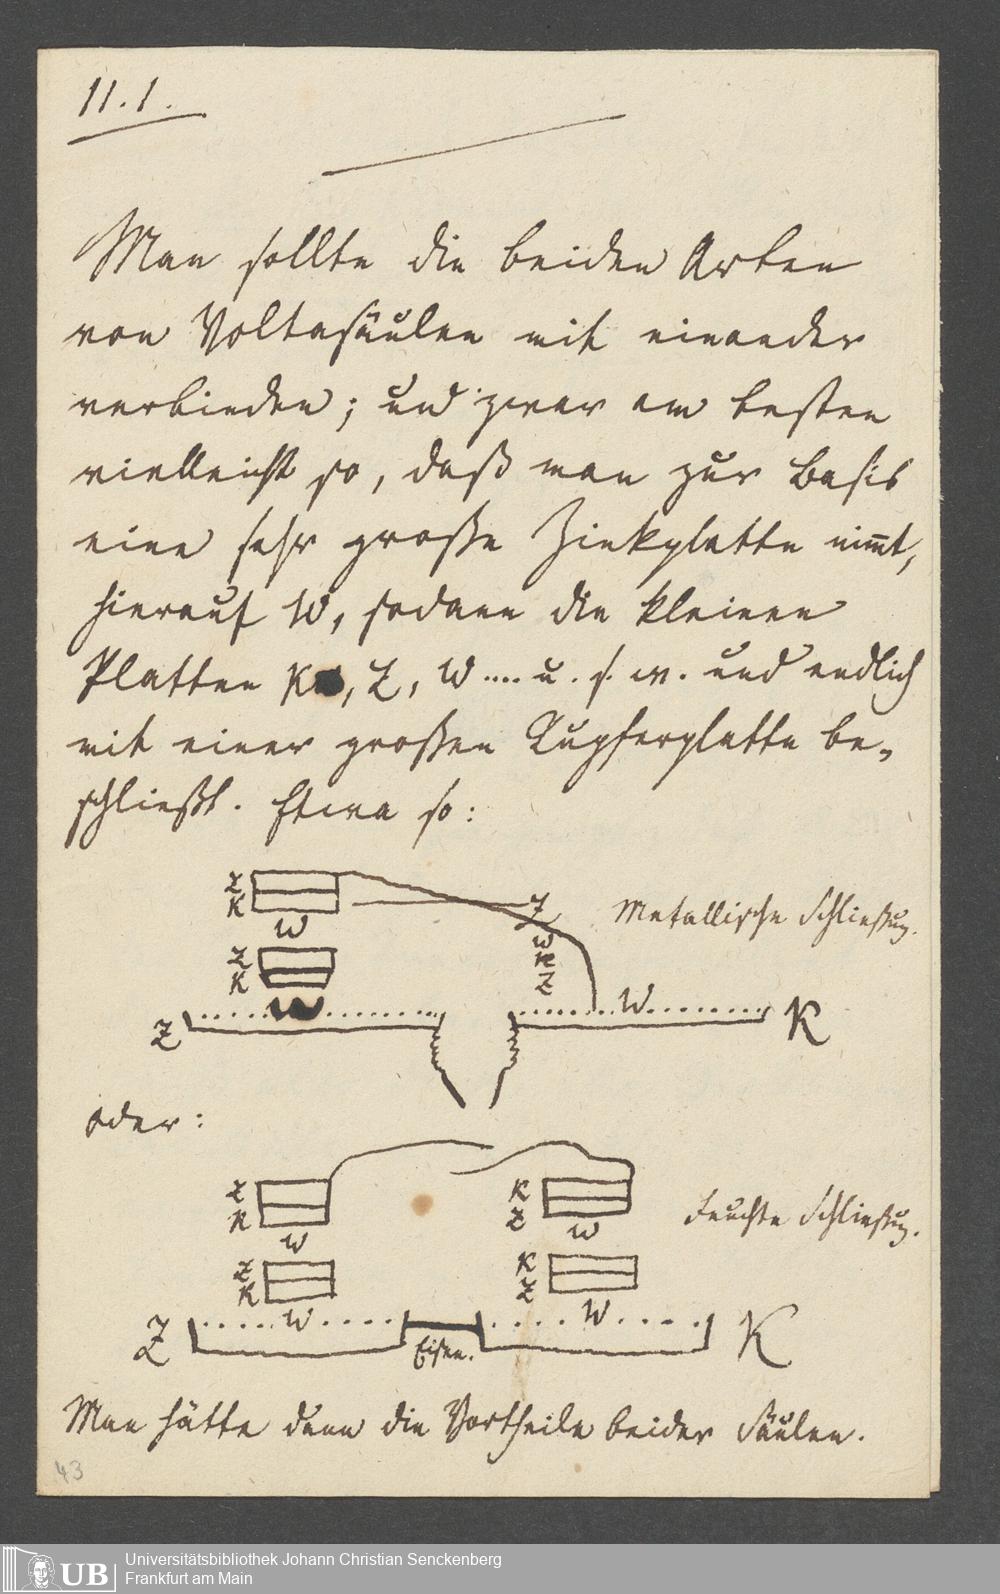 11.1.
Man sollte die beiden Arten
von Voltasäulen mit einander
verbinden; und zwar am besten
vielleicht so, daß man zur Basis
eine sehr große Zinkplatte nim̄t,
hierauf W, sodann die kleinen
Platten K, Z, W .... u. s. w. und endlich
mit einer großen Kupferplatte be-
schließt. Etwa so:
Z
K
W
Z
K
W
Z
Z
W
K
Z
W
K
Metallische Schließung.
oder:
Z
K
W
Z
K
W
Z
K
Z
W
K
Z
W
K
Eisen.
Feuchte Schließung.
Man hätte dann die Vortheile beider Säulen.
43
UB
Universitätsbibliothek Johann Christian Senckenberg
Frankfurt am Main